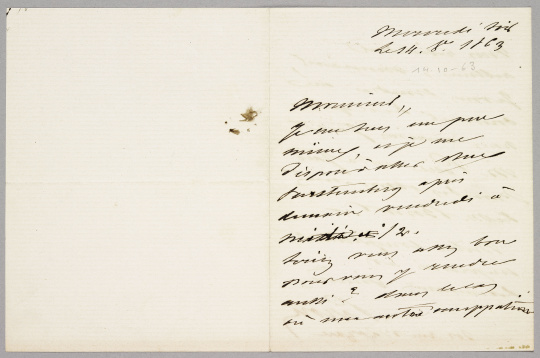 Mercredi soir
Le 14. 8bre 1863
14-10-63
Monsieur,
Je me sens un peu
mieux, et je me
dispose à aller chez
Furstenberg après
demain vendredi à
midi et 1/2.
Seriez vous assez bon
pour vous y rendre
aussi? dans le cas
où une autre occupation